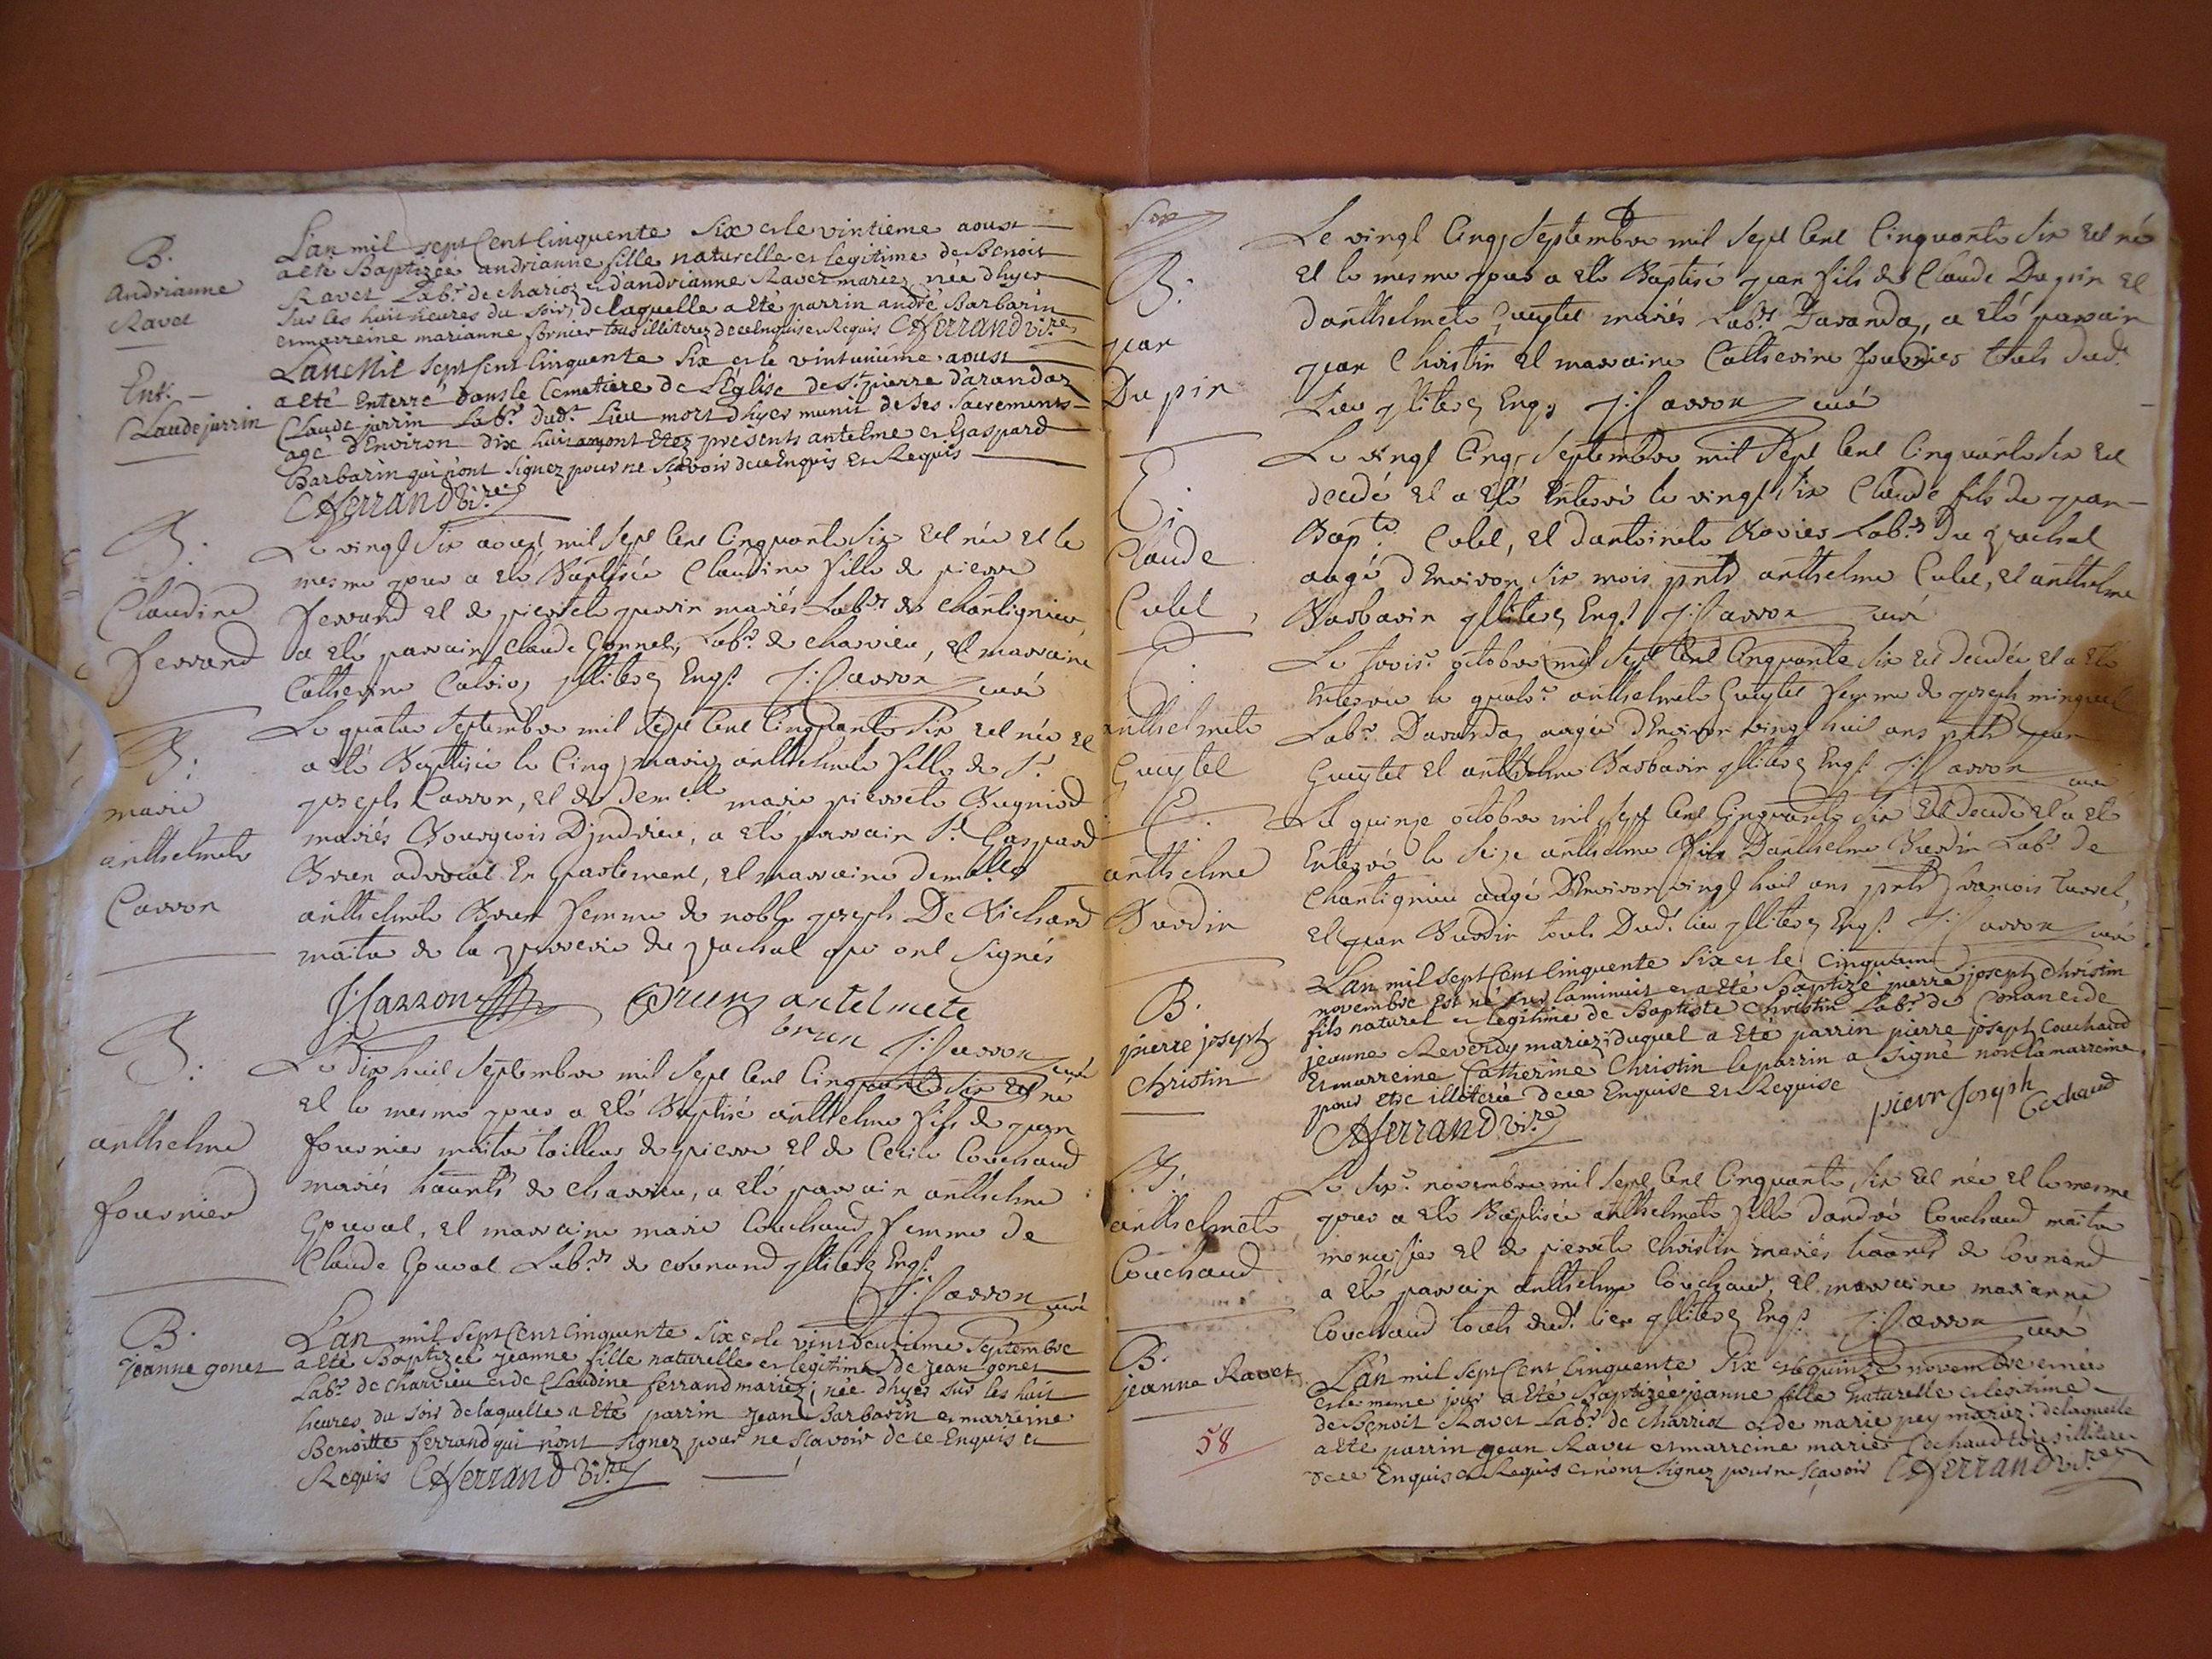 B.
Andrianne
Ravet
L'an mil sept Cent Cinquente Six et le vintieme aoust
a eté Baptizée andrianne fille naturelle et legitime de Benoit
Ravet Lab.r de charioz et d'andrianne Ravet mariez née d'hyer
Sur les huit heures du soir, de laquelle a eté parrin andré Barbarin
et marreine marianne fornier tous illiterez de ce enquis et Requis C Ferrand vi.re
Ent.
Claude jurrin
L'an Mil Sept Cent Cinquente Six et le vintunième aoust
a eté Enterré dans le Cemetière de L'Église de S.t pierre d'arandaz
Claude jurrin Lab.r dud.t Lieu mort d'hyer munit de Ses Sacrements
agé d'Environ dix huit ans ont etez présents antelme et Gaspard
Barbarin qui n'ont Signez pour ne Sçavoir de ce Enquis et Requis
C Ferrand vi.re
B.
Claudine
ferrand
Le vingt Six aoust mil Sept Cent Cinquante Six est née et le
mesme jour a eté Baptisée Claudine fille de pierre
ferrand et de pierrete jurrin mariés Lab.rs de Chantignieu,
a eté parrain Claude Gonnet, Lab.r de charvieu, et marraine
Catherine illiterez Enq.s J: Carron curé
B:
marie
anthelmete
Carron
Le quatre Septembre mil Sept Cent Cinquante Six est née et
a eté Baptisée le Cinq marie anthelmete fille de S.r
joseph Carron, et de dem.elle marie pierrete Bugniod
mariés Bourgeois D'jndrieu, a eté parrain S.r Gaspard
Brun advocat En parlement, et marraine dem.elle
anthelmete Brun femme de noble joseph De Vichard
maitre de la verrerie du vachat qui ont Signés
J: Carron Brun antelmete
brun J: Carron curé
B:
anthelme
fournier
Le dix huit Septembre mil Sept Cent Cinquante Six est né
et le mesme jour a eté Baptisé anthelme fils de jean
fournier maitre tailleur de pierre et de Cecile Couchaud
mariés haânts de charvieu, a eté parrain anthelme
Gouvat, et marraine marie Couchaud femme de
Claude Gouvat Lab.rs de Cournand illiterez Enq.s
J: Carron curé
B.
jeanne gonet
L'an mil Sept Cent Cinquente Six et le vint deuxième Septembre
a eté Baptizée jeanne fille naturelle et legitime de jean gonet
Lab.r de charvieu et de Claudine ferrand mariez; née d'hyer sur les huit
heures du soir de laquelle a eté parrin jean Barbarin et marreine
Benoitte ferrand qui n'ont Signez pour ne Scavoir de ce Enquis et
Requis C Ferrand vi.re
B:
jean
Dupin
Le vingt Cinq Septembre mil Sept Cent Cinquante Six est né
et le mesme jour a eté Baptisé jean fils de Claude Dupin et
d'anthelmete Gueytet mariés Lab.rs D'arandaz, a eté parrain
jean Christin et marraine Catherine fournier touts dud.t
Lieu illiterez Enq.s J: Carron curé
E:
Claude
Cubet
Le vingt Cinq Septembre mil Sept Cent Cinquante Six est
decedé et a eté Enterré le vingt Six Claude fils de jean
Bap.te Cubet, et d'antoinete Ravier Lab.rs du vachat
aagé d'Environ Six mois pnts anthelme Cubet, et anthelme
Barbarin illiterez Enq.s J: Carron curé
E.
anthelmete
Gueytet
Le trois.e octobre mil Sept Cent Cinquante Six est decedée et a eté
Enterrée le quatr.e anthelmete Gueytet femme de joseph
Lab.r D'arandaz aagée d'Environ vingt huit ans pnts jean
Gueytet et anthelme Barbarin illiterez Enq.s J: Carron curé
E.
anthelme
Burdin
Le quinze octobre mil Sept Cent Cinquante Six est decedé et a eté
Enterré le Seize anthelme fils D'anthelme Burdin Lab.r de
Chantignieu aagé D'Environ vingt huit ans pnts francois
et jean Burdin touts Dud.t lieu illiterez Enq.s J: Carron curé
B.
pierre joseph
Christin
L'an mil Sept Cent Cinquente Six et le Cinquieme
novembre est né sur la minuit et a eté Baptizé pierre joseph christin
fils naturel et legitime de Baptiste Christin Lab.r de Conan et de
jeanne Reverdy mariez; duquel a Eté parrin pierre joseph Couchaud
Et marreine Catherine Christin le parrin a Signé non la marreine
pour etre illiterée de ce Enquise et Requise pierr Joseph
C Ferrand vi.re Cochaud
B.
anthelmete
Couchaud
Le Six.e novembre mil Sept Cent Cinquante Six est née et le mesme
jour a eté Baptisée anthelmete fille d'andré Couchaud maitre
menuisier et de pierrete Christin mariés haânts de Cournand
a eté parrain anthelme Couchaud, et marraine marianne
Couchaud touts dud.t lieu illiterez Enq.s J: Carron curé
B.
jeanne Ravet
58
L'an mil Sept Cent Cinquente Six et le quinze novembre est née
et le meme jour a eté Baptizée jeanne fille naturelle et legitime
de Benoit Ravet Lab.r de charrioz et de marie pey mariez; de laquelle
a eté parrin jean Ravet et marreine marie Cochaud tous illiterez
de ce Enquis et Requis et n'ont Signez pour ne Sçavoir C Ferrand vi.re